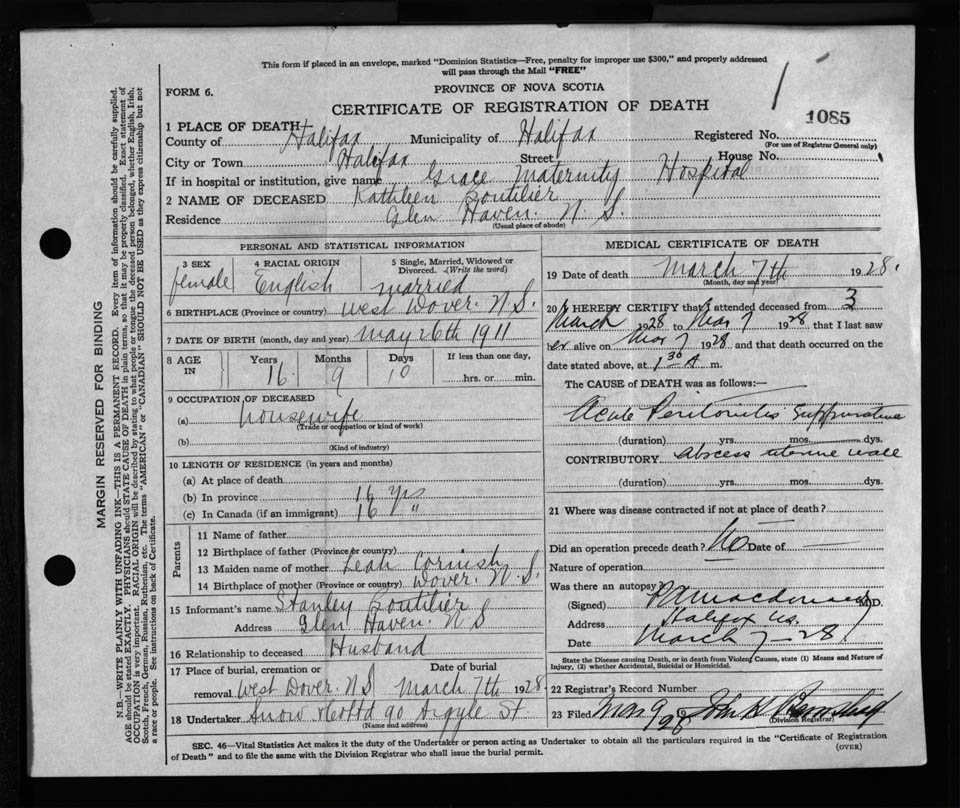 This form if placed in an envelope, marked "Dominion Statistics—Free, penalty for improper use $300," and properly addressed
will pass through the Mail "FREE"
FORM 6.
PROVINCE OF NOVA SCOTIA
CERTIFICATE OF REGISTRATION OF DEATH
1085
1 PLACE OF DEATH
County of Halifax Municipality of Halifax Registered No.
(For use of Registrar General only)
City or Town Halifax Street House No.
If in hospital or institution, give name Grace Maternity Hospital
2 NAME OF DECEASED Kathleen Boutilier
Residence Glen Haven. N. S.
(Usual place of abode)
PERSONAL AND STATISTICAL INFORMATION
3 SEX 4 RACIAL ORIGIN 5 Single, Married, Widowed or
Divorced. (Write the word)
female English married
6 BIRTHPLACE (Province or country) West Dover. N.S.
7 DATE OF BIRTH (month, day and year) May 26th 1911
8 AGE IN Years Months Days If less than one day,
16 9 10 hrs. or min.
9 OCCUPATION OF DECEASED
(a) housewife
(Trade or occupation or kind of work)
(b)
(Kind of industry)
10 LENGTH OF RESIDENCE (in years and months)
(a) At place of death
(b) In province 16 yrs
(c) In Canada (if an immigrant) 16 "
Parents
11 Name of father
12 Birthplace of father (Province or country)
13 Maiden name of mother Leah Cornish
14 Birthplace of mother (Province or country) Dover. N.S.
15 Informant's name Stanley Boutilier
Address Glen Haven. N S
16 Relationship to deceased Husband
17 Place of burial, cremation or Date of burial
removal West Dover. N S March 7th 1928
18 Undertaker Snow & Co Ltd 90 Argyle St
(Name and address)
MEDICAL CERTIFICATE OF DEATH
19 Date of death March 7th 1928.
(Month, day and year)
20 I HEREBY CERTIFY that I attended deceased from 3
March 1928 to Mar 7 1928 that I last saw
her alive on Mar 7 1928 and that death occurred on the
date stated above, at 1 30 A m.
The CAUSE OF DEATH was as follows:—
Acute Peritonitis Suppurative
(duration) yrs. mos. dys.
CONTRIBUTORY abscess uterine wall
(duration) yrs. mos. dys.
21 Where was disease contracted if not at place of death?
Did an operation precede death? No Date of
Nature of operation
Was there an autopsy
(Signed) M.D.
Address Halifax NS.
Date March 7-28
State the Disease causing Death, or in death from Violent Causes, state (1) Means and Nature of
Injury, (2) whether Accidental, Suicidal or Homicidal.
22 Registrar's Record Number
23 Filed Mar 9 1928 John
(Division Registrar)
SEC. 46—Vital Statistics Act makes it the duty of the Undertaker or person acting as Undertaker to obtain all the particulars required in the "Certificate of Registration
of Death" and to file the same with the Division Registrar who shall issue the burial permit.
(OVER)
MARGIN RESERVED FOR BINDING
N.B.—WRITE PLAINLY WITH UNFADING INK—THIS IS A PERMANENT RECORD. Every item of information should be carefully supplied.
AGE should be stated EXACTLY. PHYSICIANS should STATE CAUSE OF DEATH in plain terms, so that it may be properly classified. Exact statement of
OCCUPATION is very important. RACIAL ORIGIN will be described by stating to what people or tongue the deceased person belonged, whether English, Irish,
Scotch, French, German, Russian, Ruthenian, etc. The terms "AMERICAN" or "CANADIAN" SHOULD NOT BE USED as they express citizenship but not
a race or people. See instructions on back of Certificate.